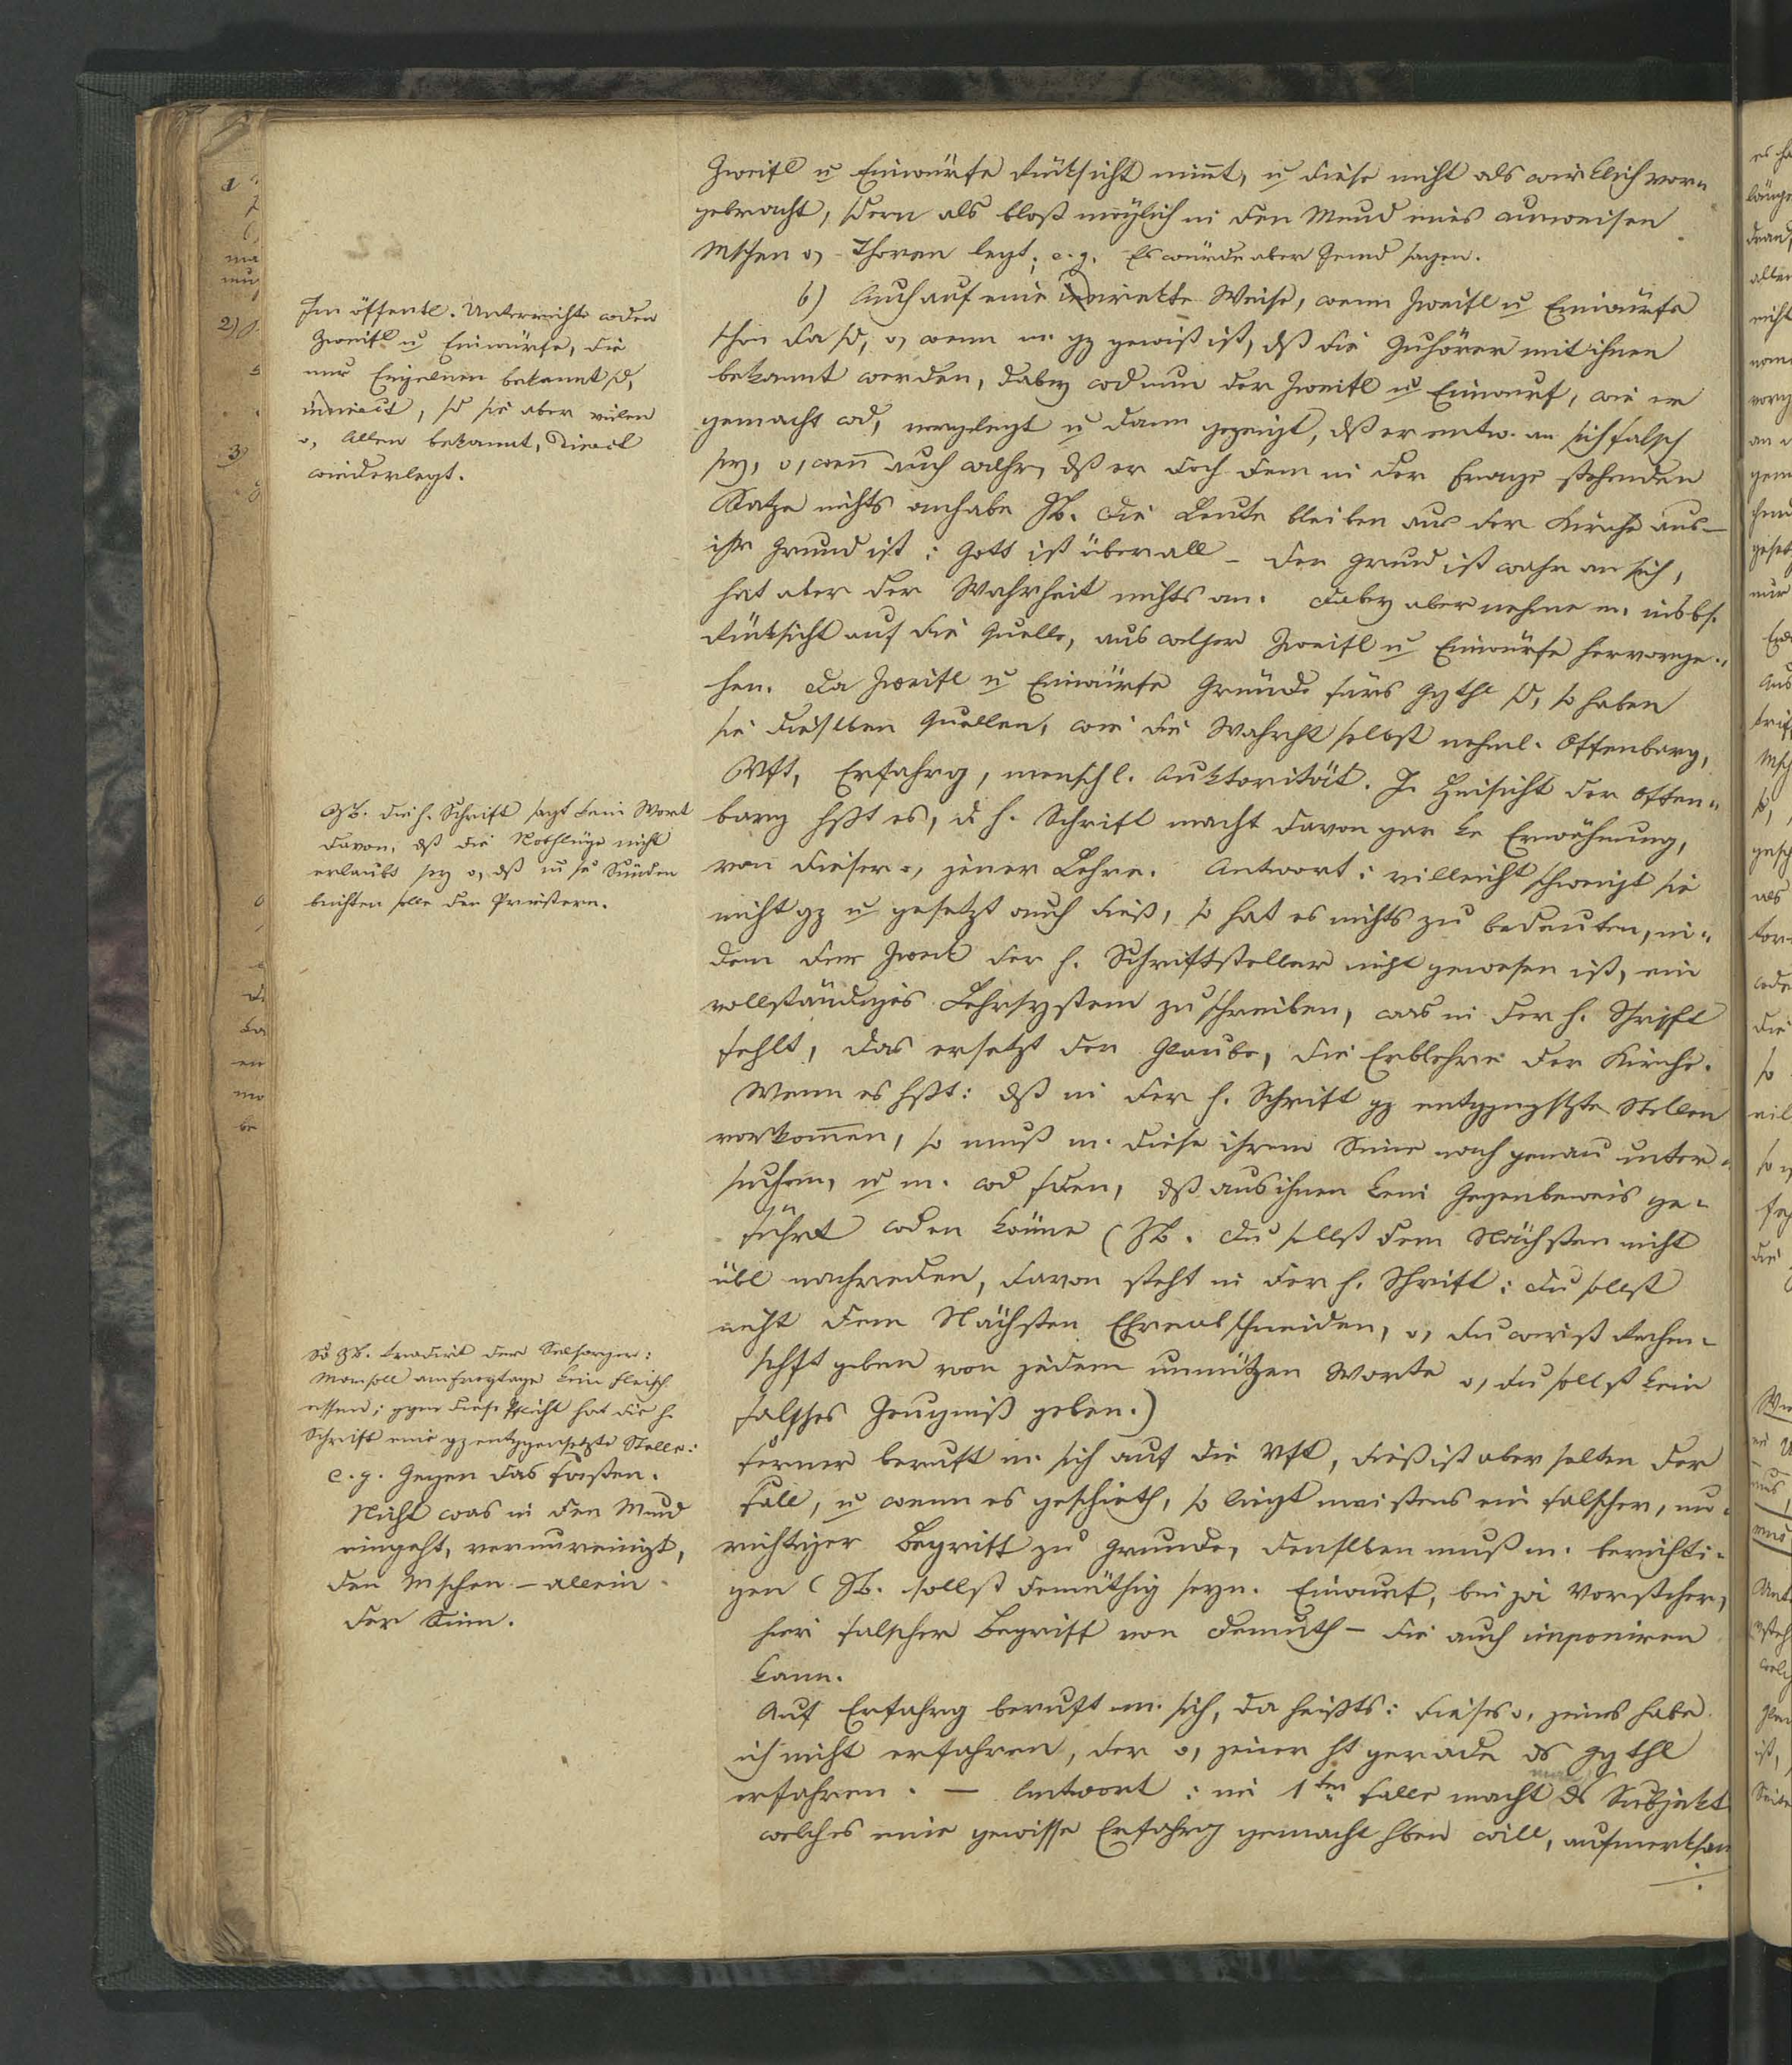 Zweifl u Einwürfe Rüksicht nimt, u diese nicht als wirklich vor-
gebracht, sdern als bloß möglich in den Mund eines unweisen
Mschen o, Thoren legt; e. g. Es würde aber Jemd sagen.
b) Auch auf eine direkte Weise, wenn Zweifl u Einwürfe
schon da sd, o, wenn m. gz gewiß ist, dß die Zuhörer mit ihnen
bekannt werden, dabey wd nun der Zweifl u Einwurf, wie er
gemacht wd, vorgelegt u dann gezeigt, dß er entw. an sich falsch
sey, o, wenn auch wahr, dß er doch dem in der Frage stehenden
Satze nichts anhabe ZB. die Leute bleiben aus der Kirche aus –
ihr Grund ist: Gott ist überall – der Grund ist wahr an sich,
hat aber der Wahrheit nichts an. Dabey aber nehme m. insbs.
Rüksicht auf die Quelle, aus welcher Zweifl u Einwürfe hervorge-
hen. Da Zweifl u Einwürfe Gründe fürs Ggthl sd, so haben
sie dieselben Quellen, wie die Wahrht selbst nehml. Offenbarg,
Vft, Erfahrg, menschl. Auktorität. In Hinsicht der Offen-
barg hßt es, d h. Schrift macht davon gar ke Erwähnung,
von dieser o, jener Lehre. Antwort: villeicht schweigt sie
nicht gz u gesetzt auch dieß, so hat es nichts zu bedeuten, in-
dem der Zwek der h. Schriftsteller nicht gewesen ist, ein
vollständiges Lehrsystem zu schreiben, was in der h. Schrift
fehlt, das ersetzt der Glaube, die Erblehre der Kirche.
Wenn es hßt: dß in der h. Schrift gz entggngstzte Stellen
vorkommen, so muß m. diese ihrem Sinne nach genau unter-
suchen, u m. wd fden, dß aus ihnen kein Gegenbeweis ge-
führt wden könne (ZB. du sollst dem Nächsten nicht
übl nachreden, davon steht in der h. Schrift: du sollst
nicht dem Nächsten Ehrabschneiden, o, du wirst Rechen-
schft geben von jedem unnützen Worte o, du sollst kein
falsches Zeugniß geben.)
Ferner beruft m. sich auf die Vft, dieß ist aber selten der
Fall, u wenn es geschieht, so liegt meistens ein falscher, un-
richtiger Begriff zu Grunde, denselben muß m. berichti-
gen (ZB. sollst demüthig seyn. Einwurf, bin ja Vorsteher,
hier falscher Begriff von Demuth – die auch imponiren
kann.
Auf Erfahrg beruft m. sich, da heißts: dieses o, jenes habe
ich nicht erfahren, der o, jener ht gerade ds Ggthl
erfahren. – Antwort: im 1ten Falle macht man ds Subjekt
welches eine gewisse Erfahrg gemacht hben will, aufmerksam
Im öffentl. Unterrichte wden
Zweifl u Einwürfe, die
nur Einzelnen bekannt sd,
indirect, sd sie aber vielen
o, Allen bekannt, direct
wiederlegt.
ZB. die h. Schrift sagt kein Wort
davon, dß die Nothlüge nicht
erlaubt sey o, dß m se Sünden
beichten solle den Priestern.
So ZB. tradirt der Selsorger:
Man soll am Freytage kein Fleisch
essen; ggen diese Pflicht hat die h.
Schrift eine gz entggengesetzte Stelle:
e. g. Gegen das Fasten.
Nicht was in den Mund
eingeht, verunreinigt,
den Mschen – allein
der Sinn.